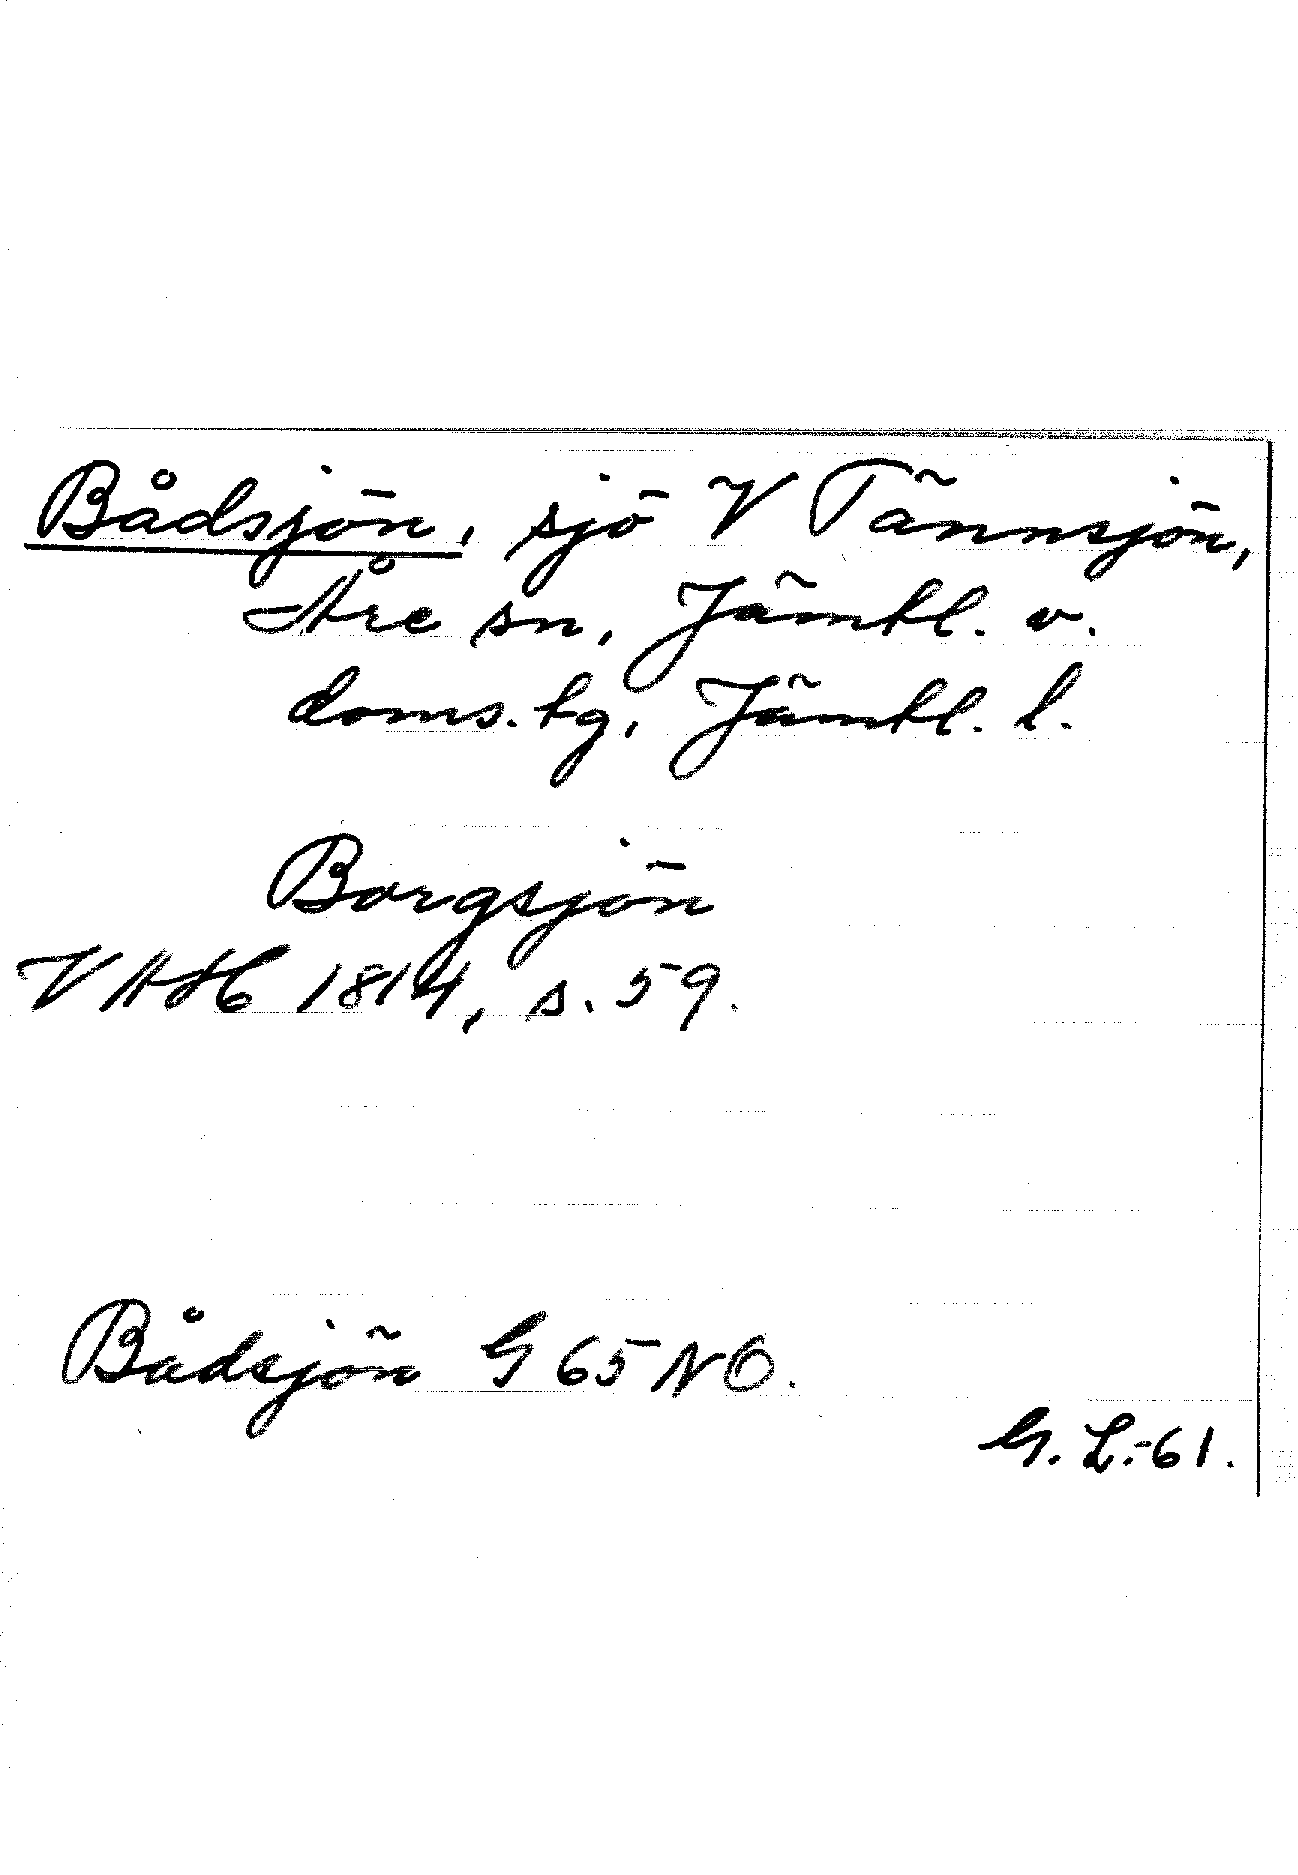 Bådsjön, sjö V Tännsjön,
Åre sn, Jämtl. v.
doms. tg, Jämtl. l.
Borgsjön
VAH 1814, s. 59.
Bådsjön G 65 NO.
G. L.-61.